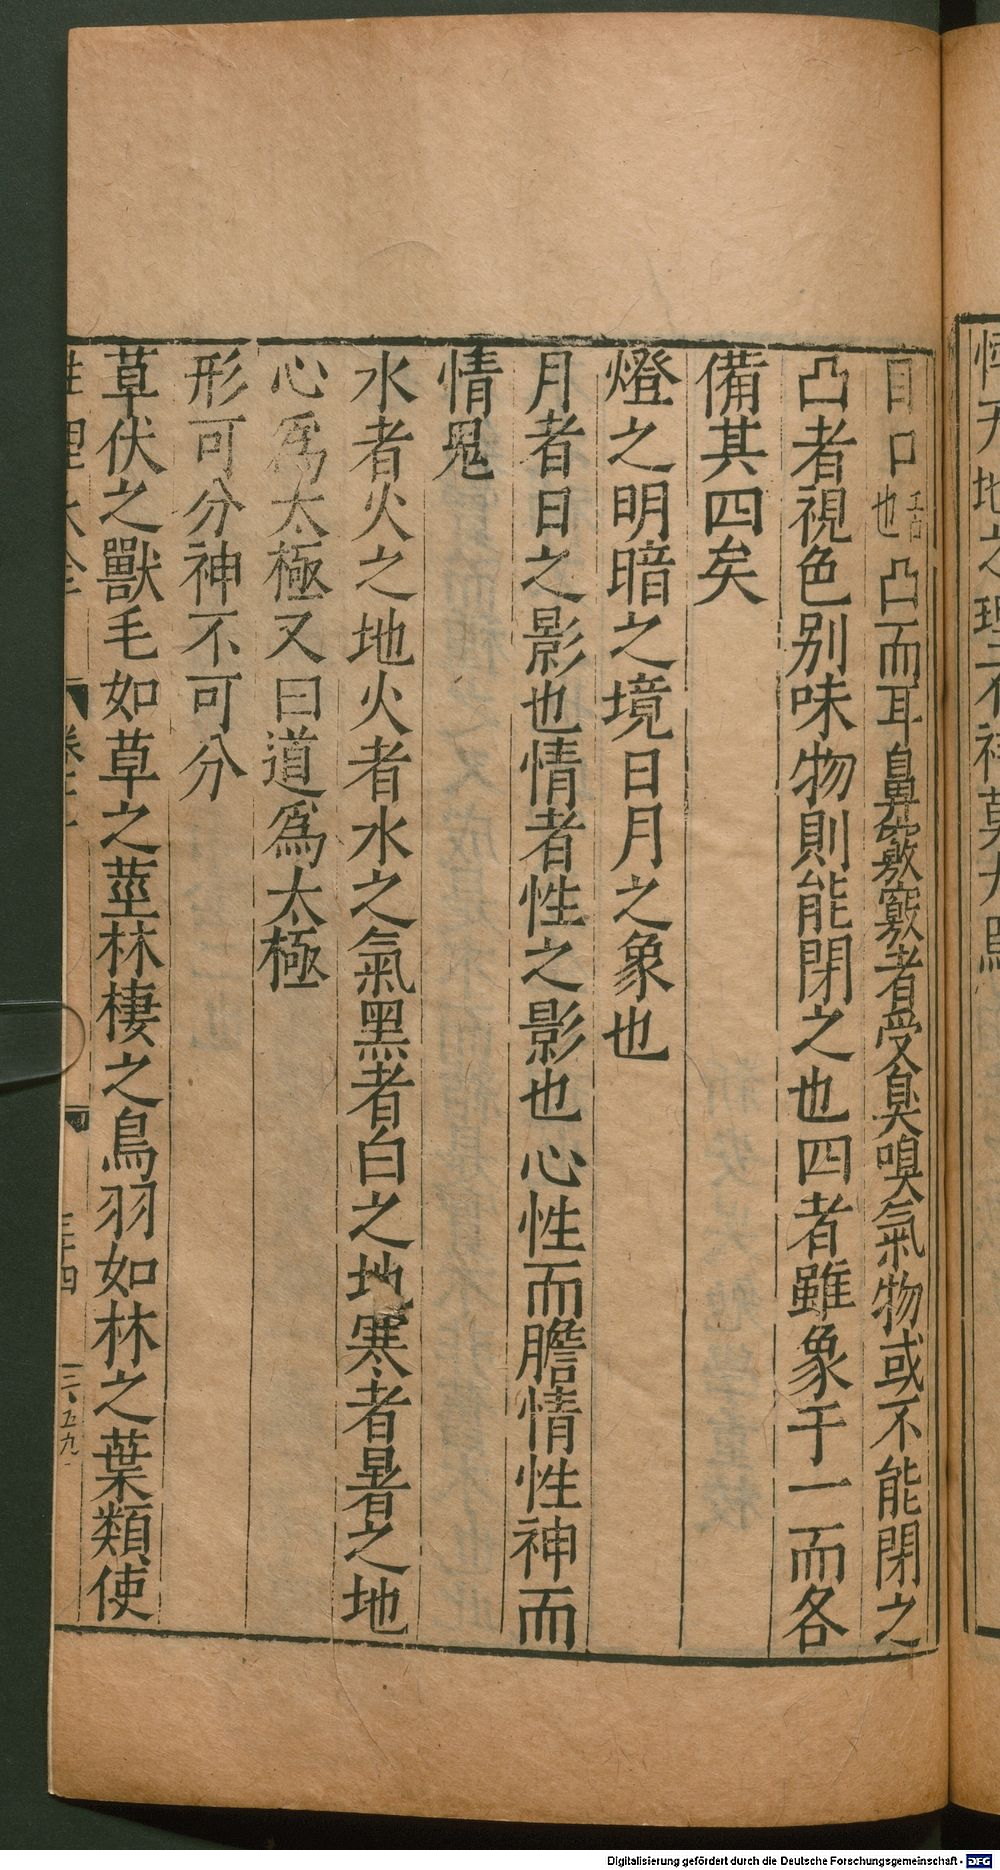 目口凸而耳鼻竅竅者受臭嗅氣物或不能閉之
也
凸者視色別味物則能閉之也四者雖象于一而各
備其四矣
燈之明暗之境日月之象也
月者日之影也情者性之影也心性而膽情性神而
情鬼
水者火之地火者水之氣黑者白之地寒者暑之地
心爲太極又曰道爲太極
形可分神不可分
草伏之獸毛如草之莖林棲之鳥羽如林之葉類使
三十四
三、五九
Digitalisierung gefördert durch die Deutsche Forschungsgemeinschaft - DFG